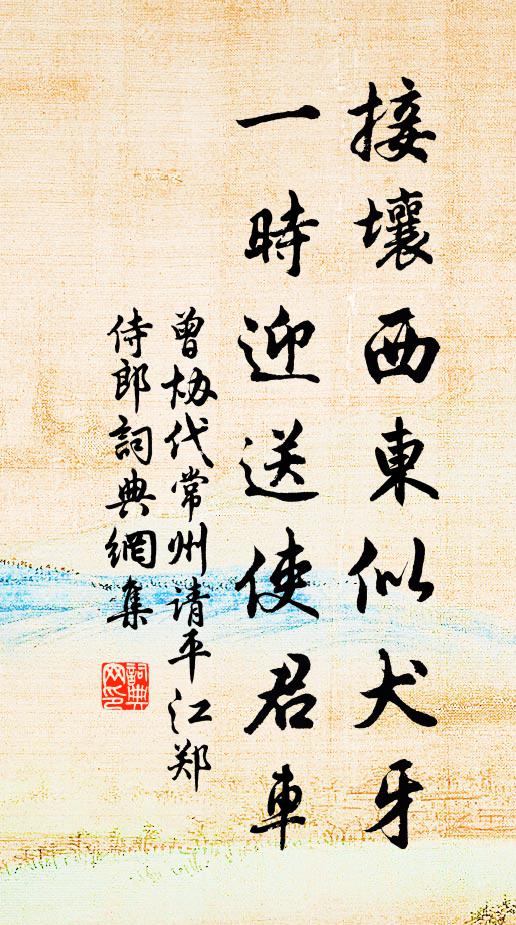 接壤西東似犬牙
一時迎送使君車
曾协代常州请平江郑
侍郎詞典網集
詞典網印